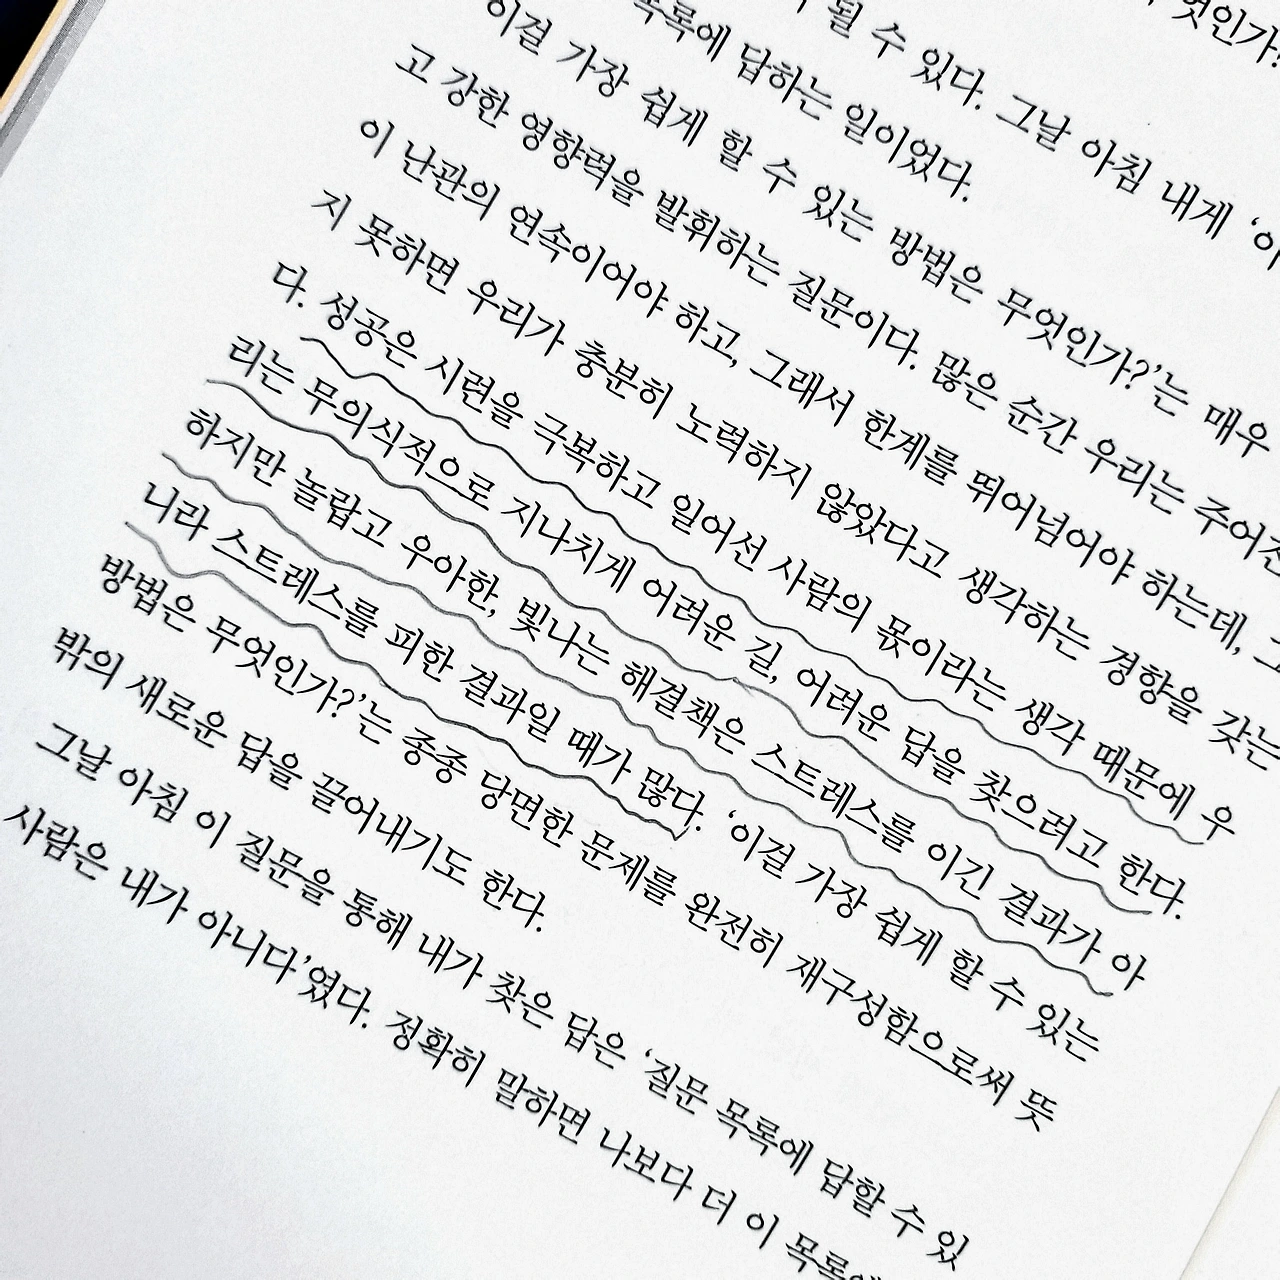 될 수 있다. 그날 아침 내게 ‘이
목록에 답하는 일이었다.
이걸 가장 쉽게 할 수 있는 방법은 무엇인가?’는 매우
고 강한 영향력을 발휘하는 질문이다. 많은 순간 우리는 주어진
이 난관의 연속이어야 하고, 그래서 한계를 뛰어넘어야 하는데, 그
지 못하면 우리가 충분히 노력하지 않았다고 생각하는 경향을 갖는
다. 성공은 시련을 극복하고 일어선 사람의 몫이라는 생각 때문에 우
리는 무의식적으로 지나치게 어려운 길, 어려운 답을 찾으려고 한다.
하지만 놀랍고 우아한, 빛나는 해결책은 스트레스를 이긴 결과가 아
니라 스트레스를 피한 결과일 때가 많다. ‘이걸 가장 쉽게 할 수 있는
방법은 무엇인가?’는 종종 당면한 문제를 완전히 재구성함으로써 뜻
밖의 새로운 답을 끌어내기도 한다.
그날 아침 이 질문을 통해 내가 찾은 답은 ‘질문 목록에 답할 수 있
사람은 내가 아니다’였다. 정확히 말하면 나보다 더 이 목록에